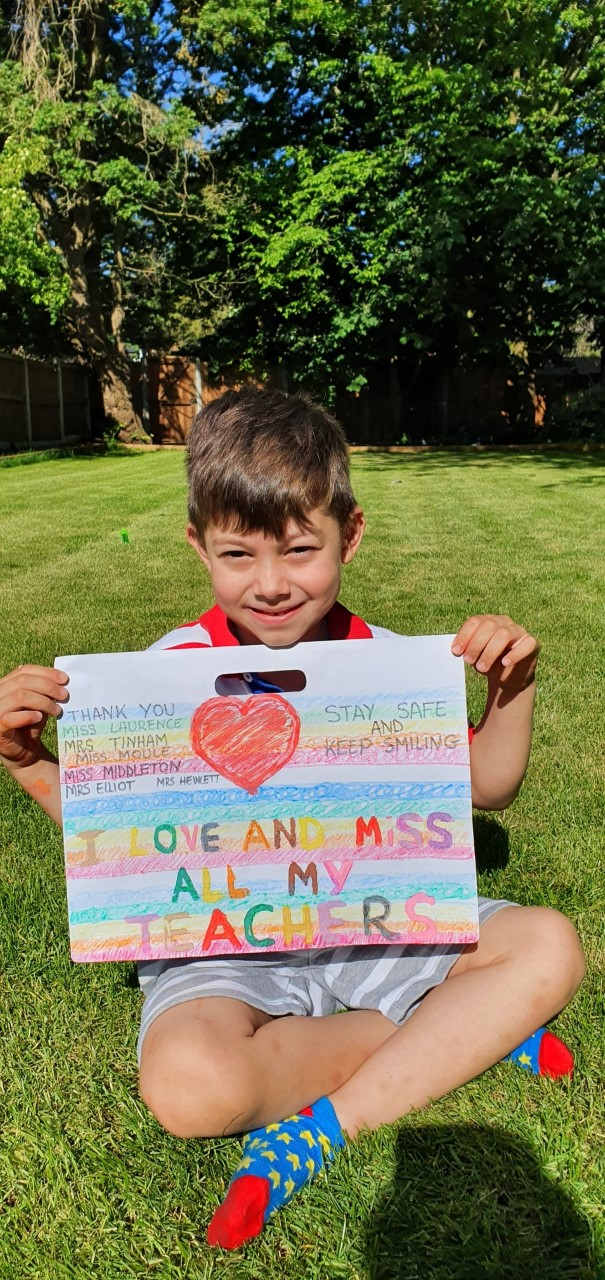 THANK YOU
MISS LAURENCE
MRS TINHAM
MISS MOULE
MISS MIDDLETON
MRS ELLIOT MRS HEWLETT
STAY SAFE
AND
KEEP SMILING
I LOVE AND MiSS
ALL MY
TEACHERS